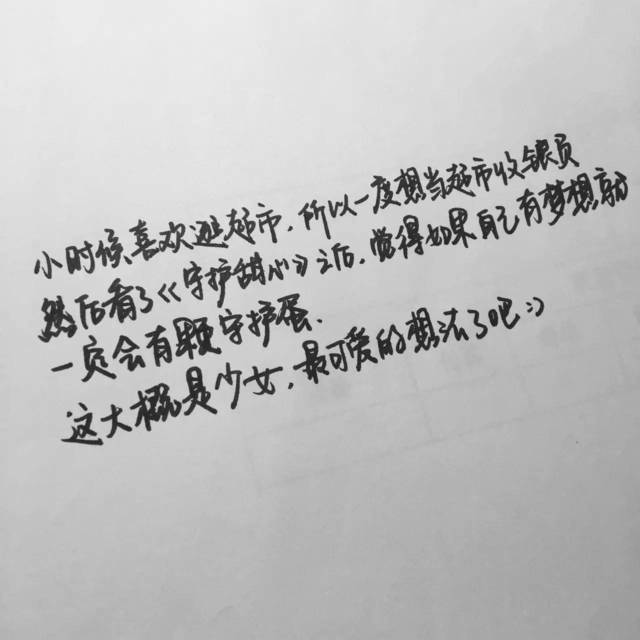 小时候喜欢逛超市，所以一度想当超市收银员
然后看了《守护甜心》之后，觉得如果自己有梦想就
一定会有颗守护蛋、
这大概是少女，最可爱的想法了吧：）